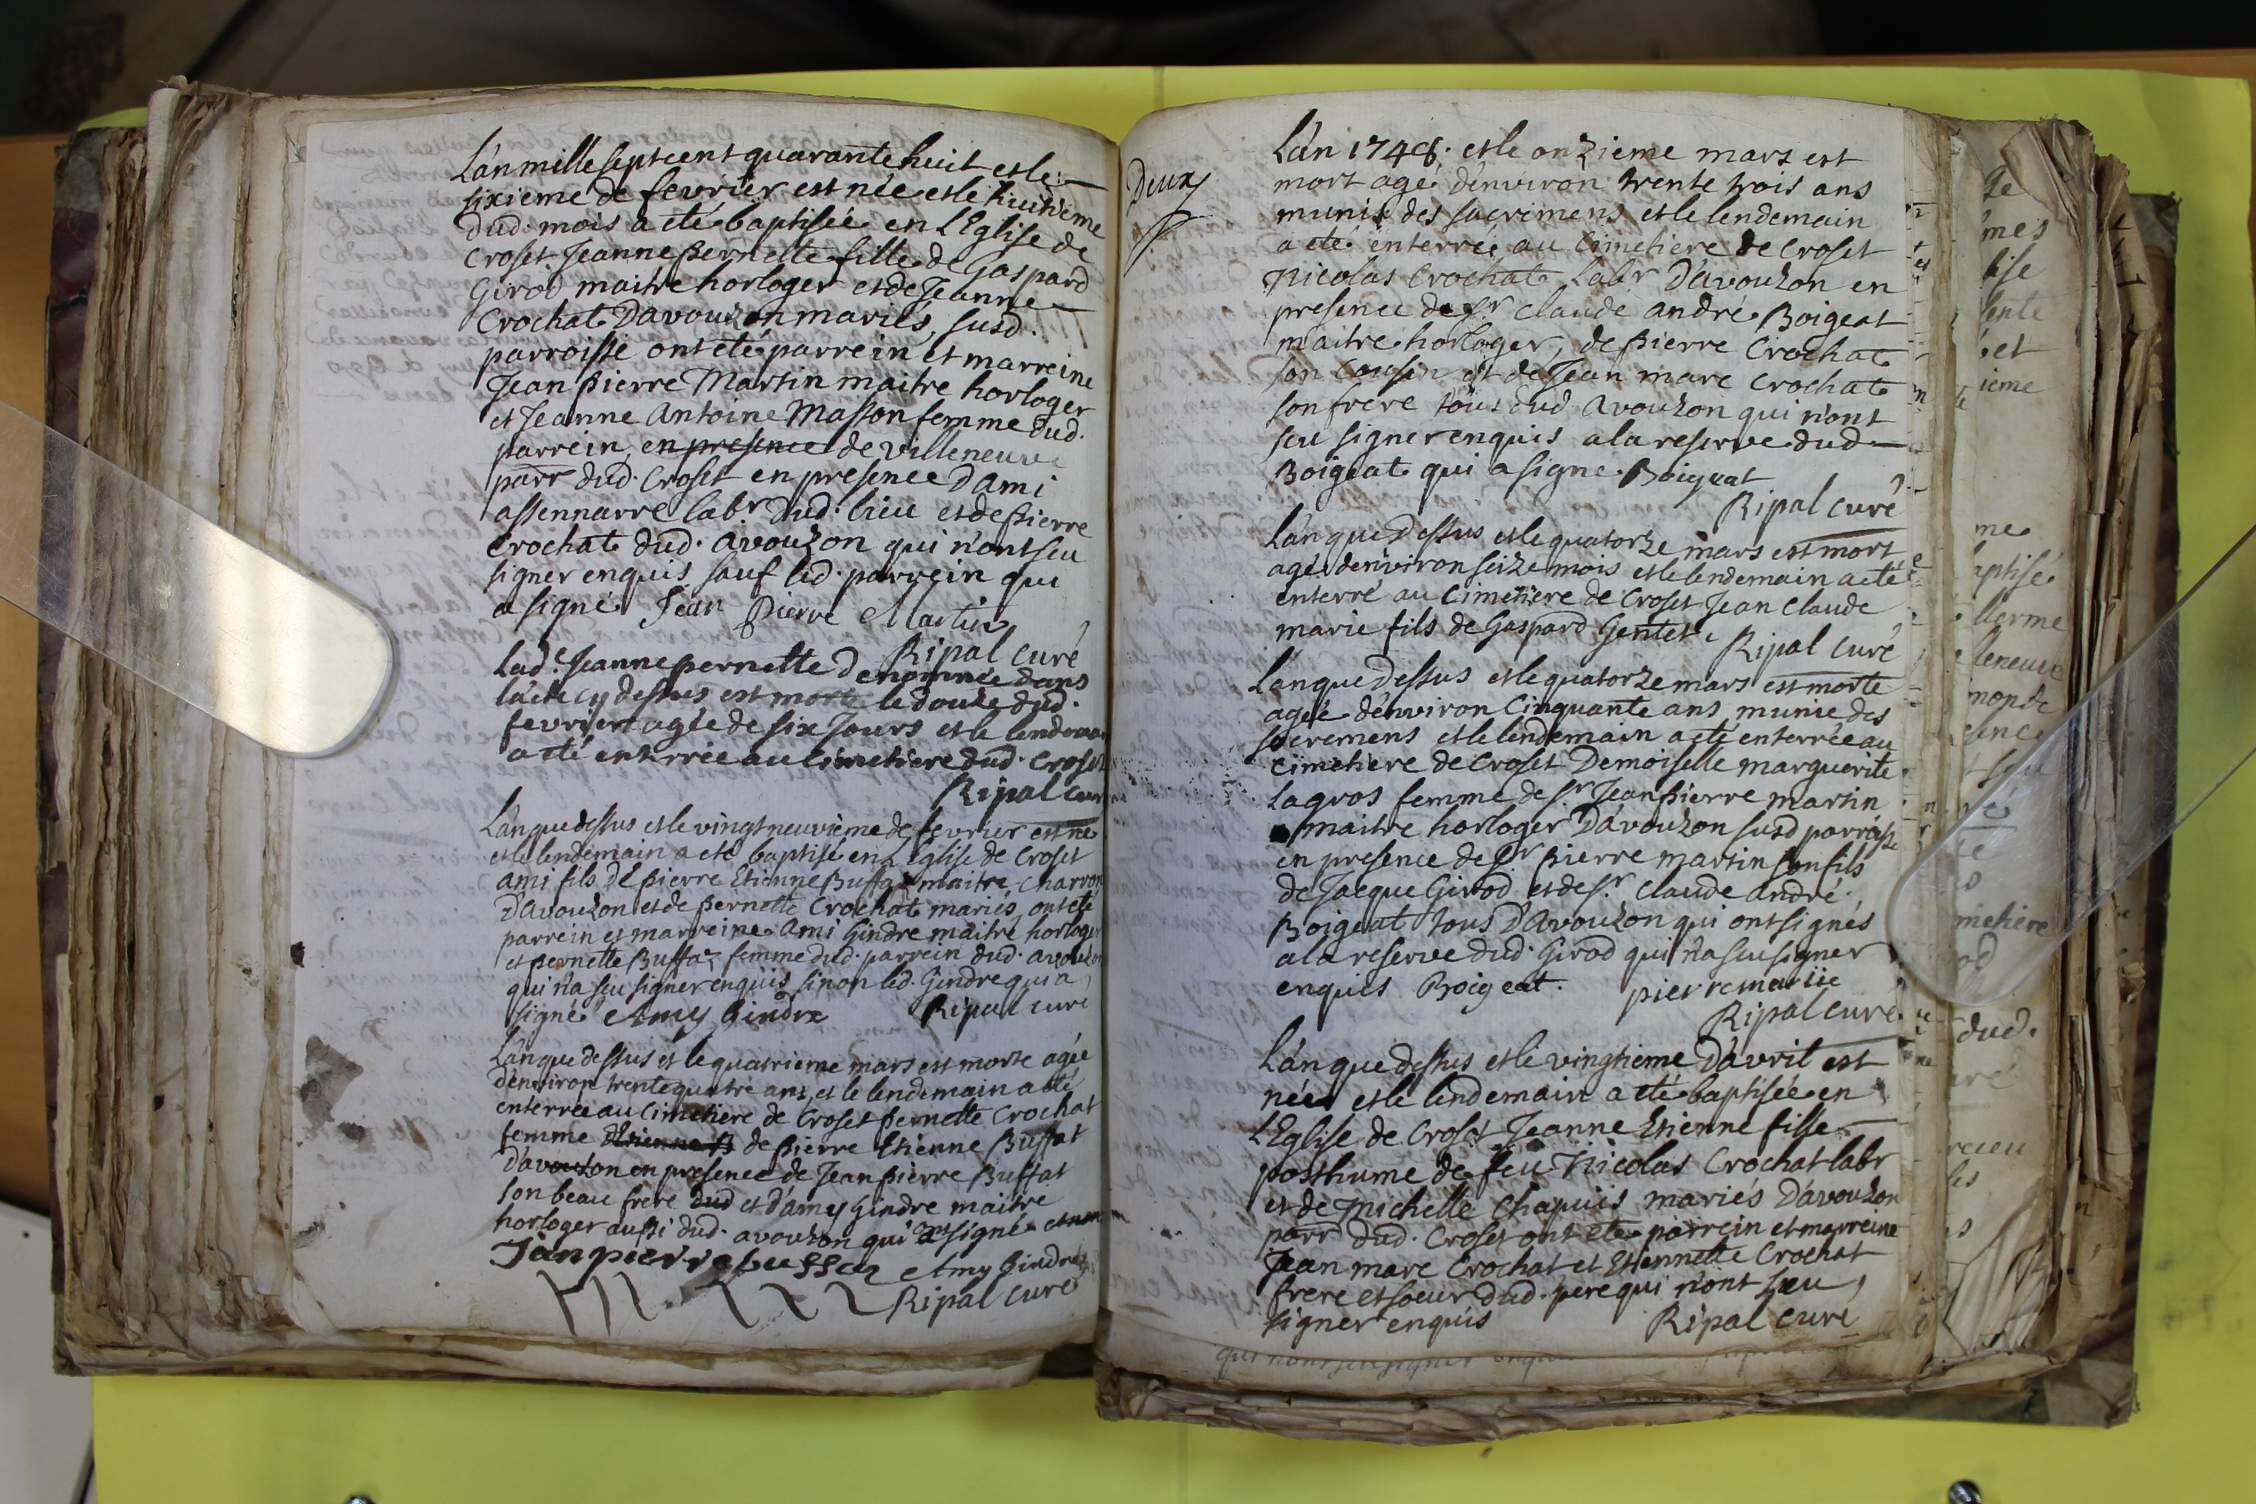 L'an mille sept cent quarante huit et le
sixieme de fevrier est née et le huitieme
dud. mois a eté baptisée en l'Eglise de
Croset Jeanne Pernette fille de Gaspard
Girod maitre horloger et de Jeanne
Crochat D'avouzon mariés, susd.
parroisse ont eté parrein et marreine
Jean Pierre Martin maitre horloger
et Jeanne Antoine Masson femme dud.
parrein, en presence de villeneuve
parr dud. Croset en presence D'ami
assennarre lab.r dud. lieu et de Pierre
Crochat dud. avouzon qui n'ont seu
signer enquis sauf led. parrein qui
a signé Jean Pierre Martin
Ripal curé
Lad.e Jeanne Pernette denommée dans
l'acte cy dessus est morte le douze dud.
fevrier agée de six jours et le lendemain
a eté enterrée au Cimetiere dud. Croset
Ripal curé
L'an que dessus et le vingt neuvieme de fevrier est né
et le lendemain a eté baptisé en l'Eglise de Croset
ami fils de Pierre Etienne Buffaz maitre Charron
D'avouzon et de Pernette Crochat mariés ont eté
parrein et marreine Ami Gindre maitre horloger
et Pernette Buffaz femme dud. parrein dud. avouzon
qui n'a seu signer enquis sinon led. Gindre qui a
signé Amy Gindre Ripal curé
L'an que dessus et le quatrieme mars est morte agée
d'environ trente quatre ans, et le lendemain a eté
enterrée au Cimetiere de Croset Pernette Crochat
femme de Pierre Etienne Buffat
D'avouzon en presence de Jean Pierre Buffat
son beau frere dud et d'amy Gindre maitre
horloger aussi dud. avouzon qui ont signé et non
Jan pierre buffaz Amy Gindre
Ripal curé
Deux
L'an 1748. et le onzieme mars est
mort agé d'environ trente trois ans
munis des sacremens et le lendemain
a eté enterrée au Cimetiere de Croset
Nicolas Crochat Lab.r D'avouzon en
presence de S.r Claude André Boigeat
maitre horloger, de Pierre Crochat
son cousin et de Jean marc Crochat
son frere tous dud avouzon qui n'ont
seu signer enquis a la reserve dud
Boigeat qui a signé. Boigeat
Ripal curé
L'an que Dessus et le quatorze mars est mort
agé d'environ seize mois et le lendemain a eté
enterré au Cimetiere de Croset Jean Claude
marie fils de Gaspard Gentet. Ripal curé
L'an que dessus et le quatorze mars est morte
agée d'environ Cinquante ans munie des
sacremens et le lendemain a eté enterrée au
Cimetiere de Croset Demoiselle marguerite
Lagros femme de S.r Jean Pierre martin
maitre horloger D'avouzon susd parroisse
en presence de S.r Pierre martin son fils
de Jacque Girod et de S.r Claude André
Boigeat tous D'avouzon qui ont signés
a la reserve dud. Girod qui n'a seu signer
enquis Boigeat.
Ripal curé
L'an que dessus et le vingtieme D'avril est
née et le lendemain a eté baptisée en
L'Eglise de Croset Jeanne Etienne fille
posthume de feu Nicolas Crochat labr
et de Michelle Chapuis mariés D'avouzon
parr dud. Croset ont eté parrein et marreine
Jean marc Crochat et Etiennette Crochat
frere et soeur dud. pere qui n'ont seu
signer enquis Ripal curé